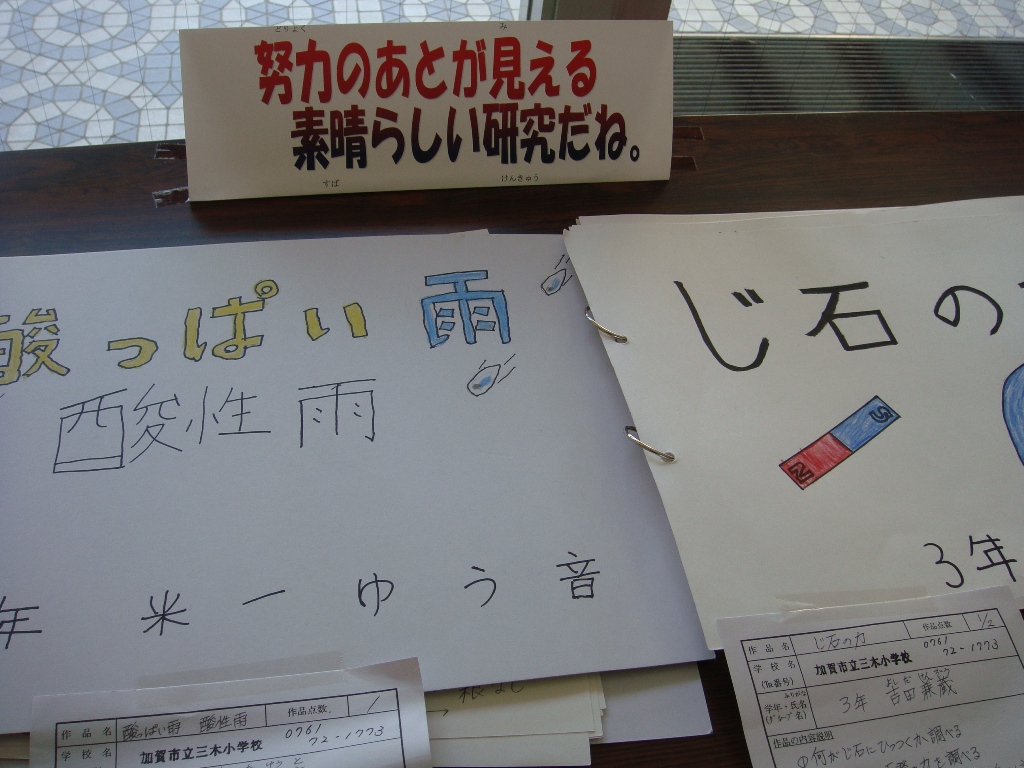 どりょく み
努力のあとが見える
素晴らしい研究だね。
すば けんきゅう
酸っぱい雨
酸性雨
年 米一ゆう音
作品名 酸っぱい雨 酸性雨 作品点数 1
学校名 加賀市立三木小学校 0761 72-1773
じ石の
N S
3年
作品名 じ石の力 作品点数 1/2
学校名 加賀市立三木小学校 0761 72-1773
(Tel番号)
ふりがな
学年・氏名 3年 吉田
(グループ名)
作品の内容説明
①何がじ石にひっつくか調べる
力を調べる